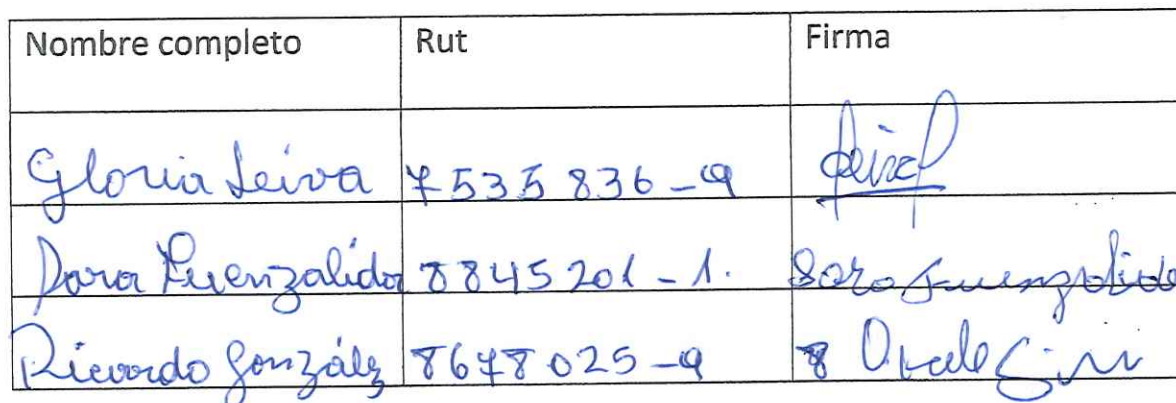 Nombre completo Rut Firma
Gloria Leiva 7535836-9
Sara Fuenzalida 8845201-1. Sara Fuenzalida
Ricardo González 8678025-9